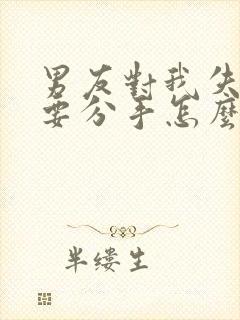 男友對我失
要分手怎麼
半缕生